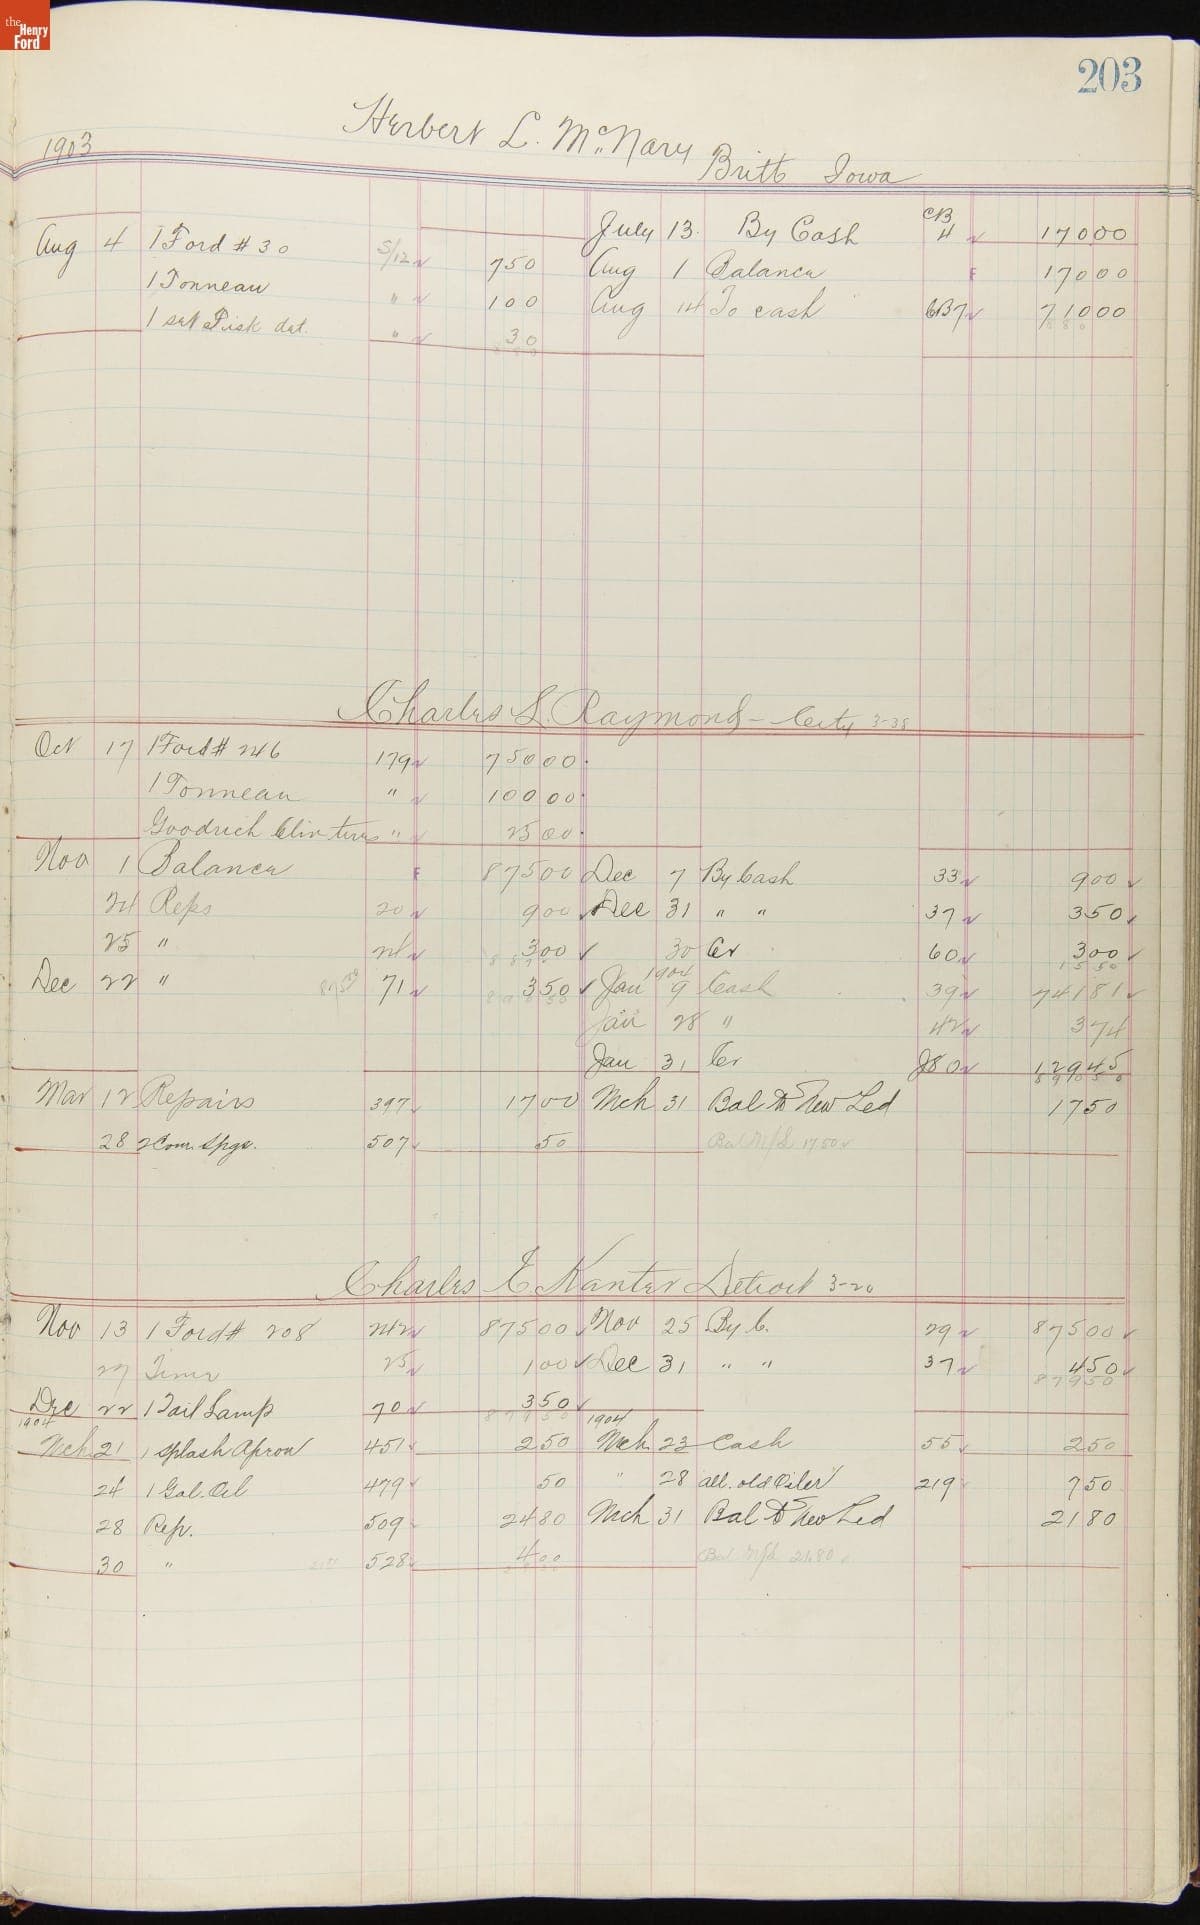 the Henry Ford
203
1903
Herbert L. McNary
Britt Iowa
July 13 By Cash CB 4 17000
Aug 4 1 Ford # 30 S/12 750 Aug 1 Balance F 17000
1 Tonneau " 100 Aug 14 To cash CB7 71000
1 set " 30
880
Charles L. Raymond - City 3-38
Oct 17 1 Ford # 246 179 75000
1 Tonneau " 10000
Goodrich Clin tires " 2500
Nov 1 Balance F 87500 Dec 7 By Cash 33 900
24 Reps 20 900 Dec 31 " " 37 350
25 " 24 300 30 Cr 60 300
1550
Dec 22 " 71 350 Jan 1904 9 Cash 39 74181
Jan 28 " 42 374
Jan 31 Cr J80 12945
89050
Mar 12 Repairs 397 1700 Mch 31 Bal To New Led 1750
28 2 Com. Spgs. 507 50 Bal N/L 1750
Charles E Kanter Detroit 3-20
Nov 13 1 Ford # 208 242 87500 Nov 25 By C. 29 87500
27 Timer 25 100 Dec 31 " " 37 450
87950
Dec 22 1 Tail Lamp 70 350
87950
1904 1904
Mch 21 1 Splash Apron 451 250 Mch 23 Cash 55 250
24 1 Gal. Oil 479 50 " 28 all. old Oiler 219 750
28 Rep. 509 2480 Mch 31 Bal To New Led 2180
30 " 528 400 Bal N/L 21.80